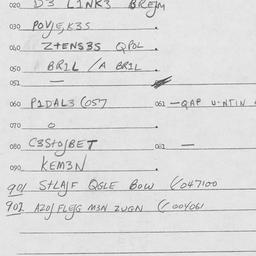 020 D3 L1NK3 BREJM
030 POVJE,K3S
040 Z+ENS3S QPOL
050 BR1L /A BR1L
051 —
060 P1DAL3 (057 061 — QAP U-NTIN
070 O
080 C3S+OJBET 081 —
090 KEM3N
901 S+LAJF QGLE BOW (/047100
902 AZOJ FLEJG M3N ZUGN (/004061